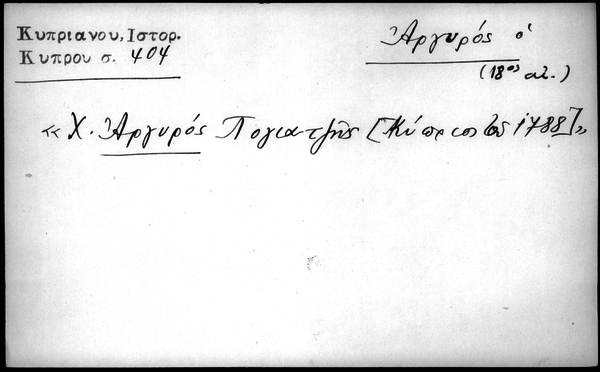 Κυπριανου, Ιστορ.
Κυπρου σ. 404
Ἀργυρός ὁ
(18ος αἰ.)
« Χ. Ἀργυρός Πογιατζῆς [Κύπριος 1788] »